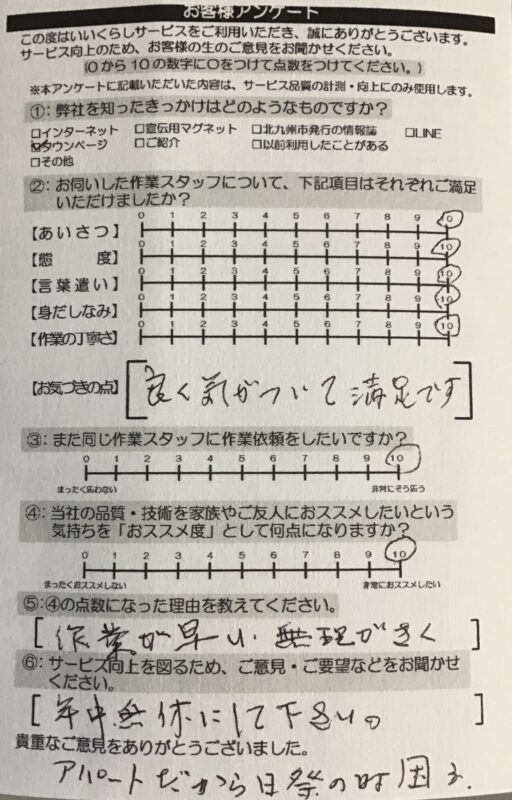 お客様アンケート
この度はいいくらしサービスをご利用いただき、誠にありがとうございます。
サービス向上のため、お客様の生のご意見をお聞かせください。
(0から10の数字に○をつけて点数をつけてください。)
※本アンケートに記載いただいた内容は、サービス品質の計測・向上にのみ使用します。
①：弊社を知ったきっかけはどのようなものですか？
□インターネット □宣伝用マグネット □北九州市発行の情報誌 □LINE
☑タウンページ □ご紹介 □以前利用したことがある
□その他
②：お伺いした作業スタッフについて、下記項目はそれぞれご満足
いただけましたか？
【あいさつ】 0 1 2 3 4 5 6 7 8 9 10
【態　　度】 0 1 2 3 4 5 6 7 8 9 10
【言葉遣い】 0 1 2 3 4 5 6 7 8 9 10
【身だしなみ】 0 1 2 3 4 5 6 7 8 9 10
【作業の丁寧さ】 0 1 2 3 4 5 6 7 8 9 10
【お気づきの点】 良く気がついて満足です
③：また同じ作業スタッフに作業依頼をしたいですか？
0 1 2 3 4 5 6 7 8 9 10
まったく思わない 非常にそう思う
④：当社の品質・技術を家族やご友人におススメしたいという
気持ちを「おススメ度」として何点になりますか？
0 1 2 3 4 5 6 7 8 9 10
まったくおススメしない 非常におススメしたい
⑤：④の点数になった理由を教えてください。
作業が早い 無理がきく
⑥：サービス向上を図るため、ご意見・ご要望などをお聞かせ
ください。
年中無休にして下さいの
貴重なご意見をありがとうございました。
アパートだから日祭の時困る.